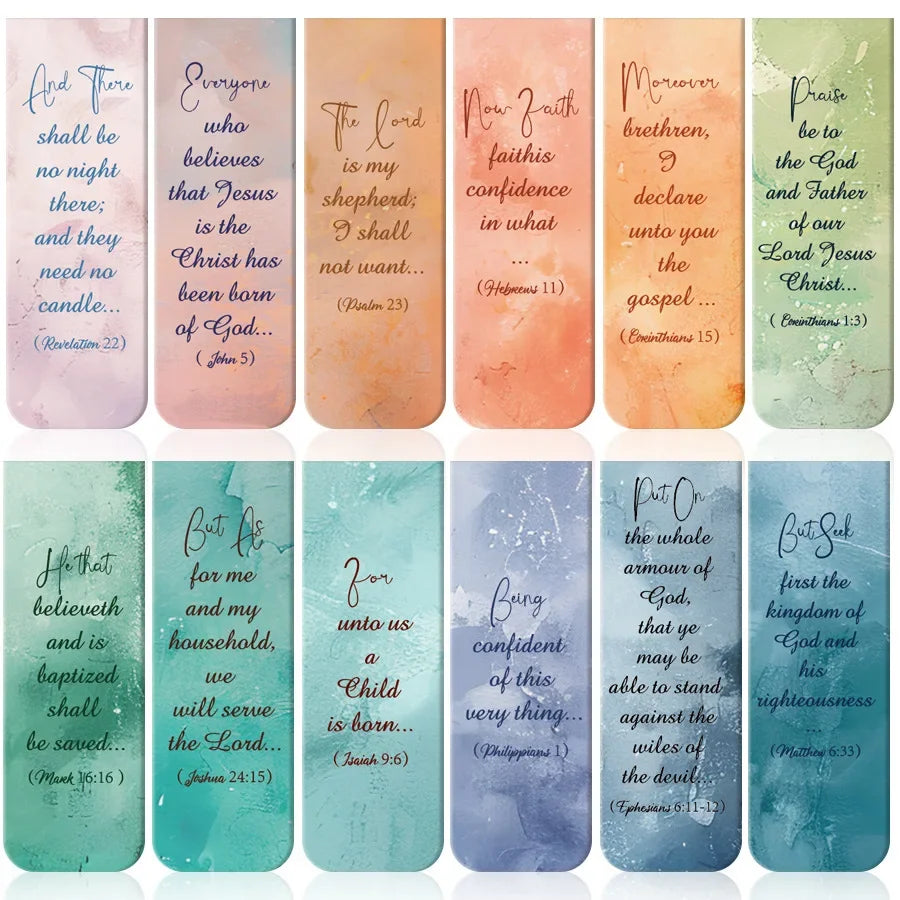 And There
shall be
no night
there;
and they
need no
candle...
(Revelation 22)
Everyone
who
believes
that Jesus
is the
Christ has
been born
of God...
( John 5)
The Lord
is my
shepherd;
I shall
not want...
(Psalm 23)
Now Faith
faithis
confidence
in what
...
(Hebrews 11)
Moreover
brethren,
I
declare
unto you
the
gospel ...
(Corinthians 15)
Praise
be to
the God
and Father
of our
Lord Jesus
Christ...
( Corinthians 1:3)
He that
believeth
and is
baptized
shall
be saved...
(Mark 16:16 )
But As
for me
and my
household,
we
will serve
the Lord...
( Joshua 24:15)
For
unto us
a
Child
is born...
( Isaiah 9:6)
Being
confident
of this
very thing...
(Philippians 1)
Put On
the whole
armour of
God,
that ye
may be
able to stand
against the
wiles of
the devil....
(Ephesians 6:11-12)
But Seek
first the
kingdom of
God and
his
righteousness
...
(Matthew 6:33)